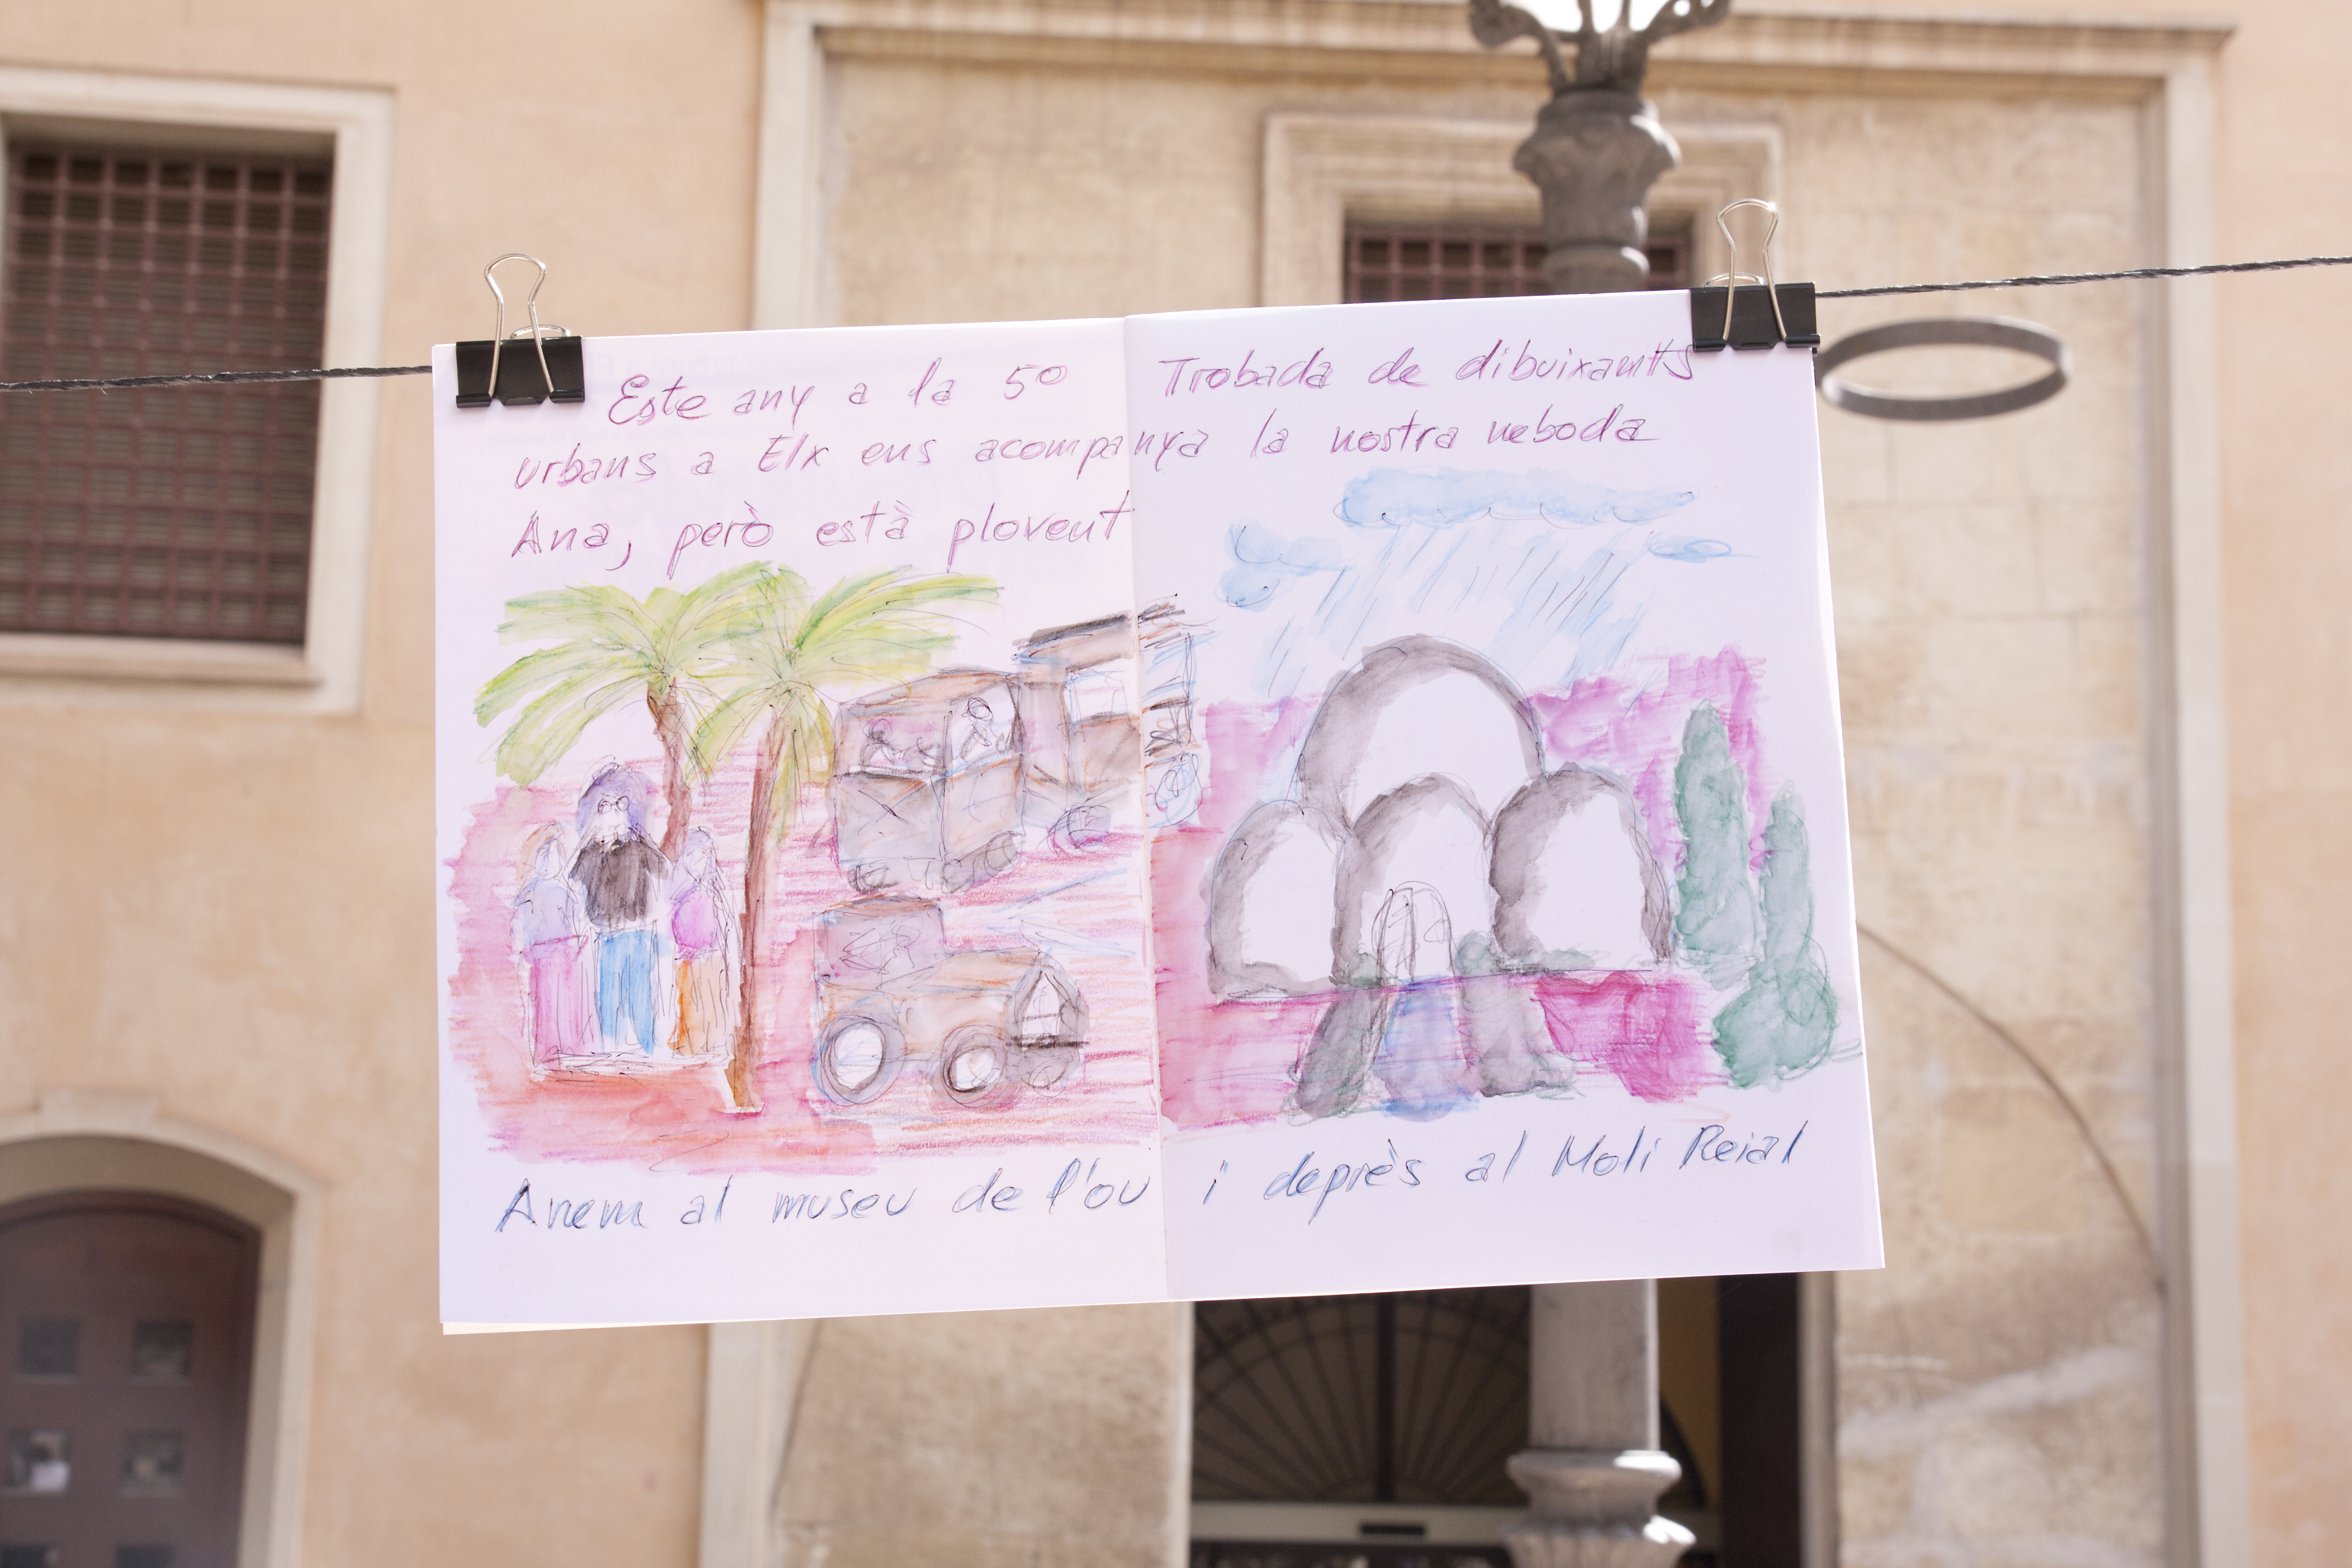 Este any a la 5º Trobada de dibuixants
urbans a Elx ens acompanya la nostra neboda
Ana, però està plovent
Anem al museu de l'ou i deprès al Moli Reial